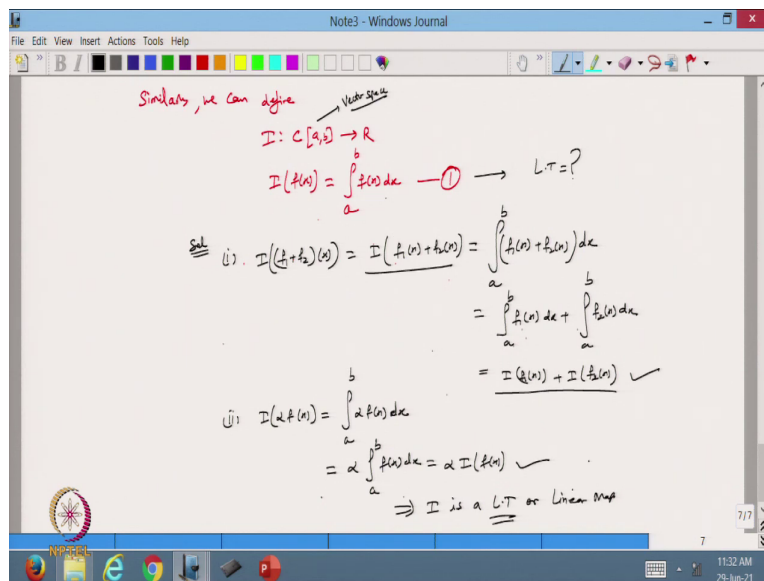 Note3 - Windows Journal
File Edit View Insert Actions Tools Help
Similarly, we can define
Vector space
I: C[a,b] → R
I(f(x)) = ∫_a^b f(x) dx — ① → L.T = ?
Sol (i). I((f₁+f₂)(x)) = I(f₁(x)+f₂(x)) = ∫_a^b (f₁(x)+f₂(x)) dx
= ∫_a^b f₁(x) dx + ∫_a^b f₂(x) dx
= I(f₁(x)) + I(f₂(x)) ✓
(ii) I(αf(x)) = ∫_a^b αf(x) dx
= α ∫_a^b f(x) dx = α I(f(x)) ✓
⇒ I is a L.T or Linear Map
7/7
7
NPTEL
11:32 AM
29-Jun-21